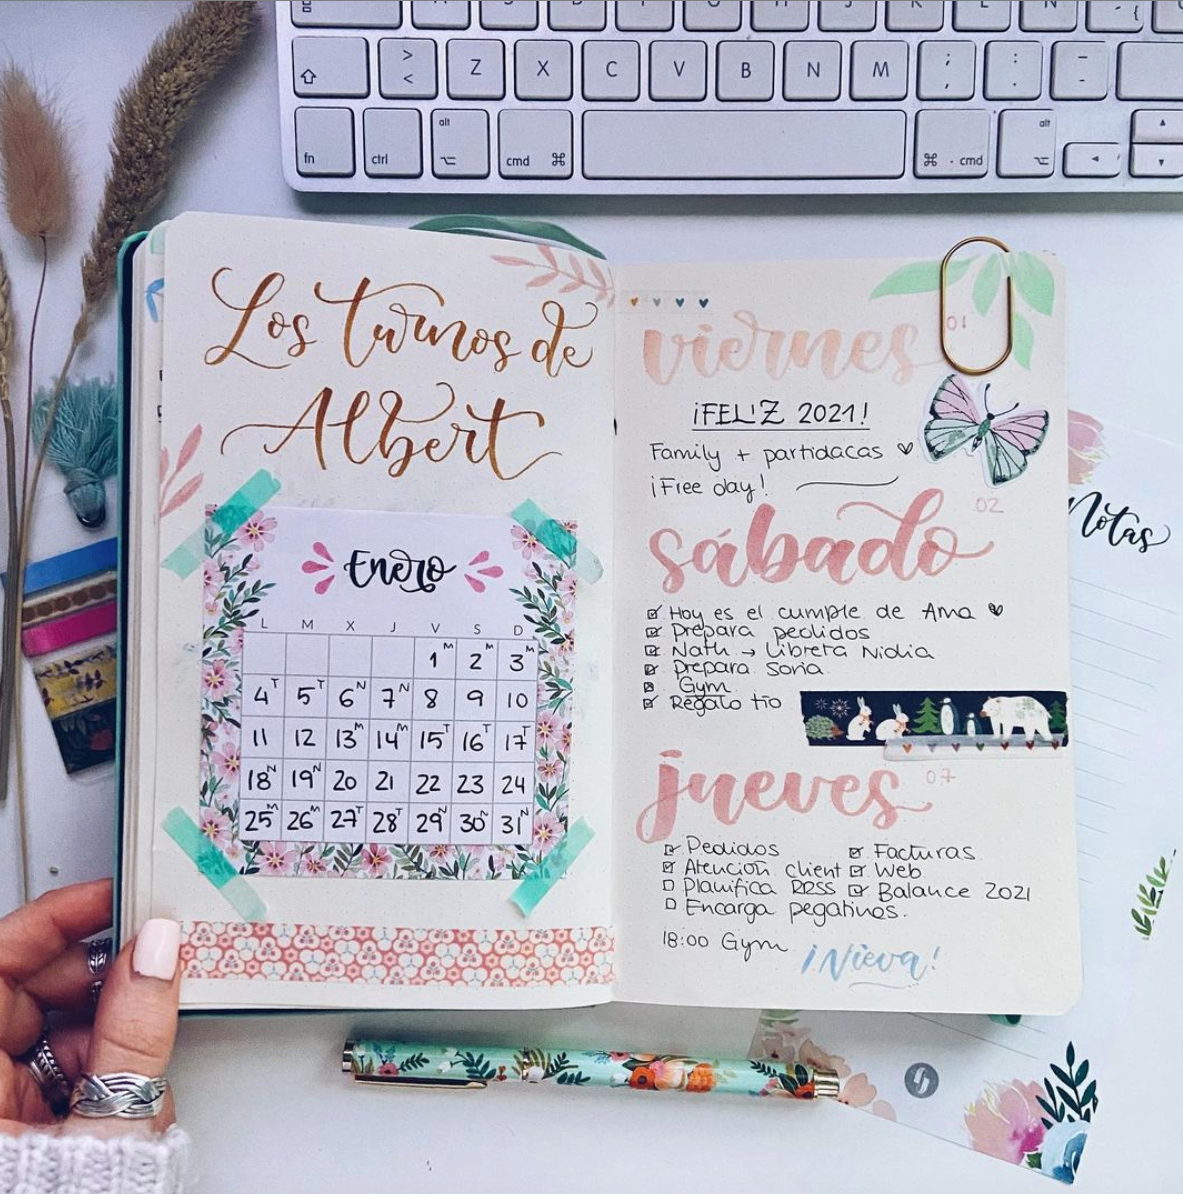 > <
Z X C V B N M ; , : . - _
fn ctrl alt ⌥ cmd ⌘ ⌘ cmd alt ⌥
Los turnos de
Albert
Enero
L M X J V S D
1M 2M 3M
4T 5T 6N 7N 8 9 10
11 12 13M 14M 15T 16T 17T
18N 19N 20 21 22 23 24
25M 26M 27T 28T 29N 30N 31N
viernes 01
¡FELIZ 2021!
Family + partidacas ♥
¡Free day!
sábado 02
☑ Hoy es el cumple de Ama ♥
☑ Prepara pedidos
☑ Nath → Libreta Nidia
☑ Prepara Soria
☑ Gym
☑ Regalo tío
jueves 07
☑ Pedidos ☑ Facturas
☑ Atención client ☑ Web
☐ Planifica RRSS ☑ Balance 2021
☐ Encarga pegatinas.
18:00 Gym
¡Nieva!
Notas